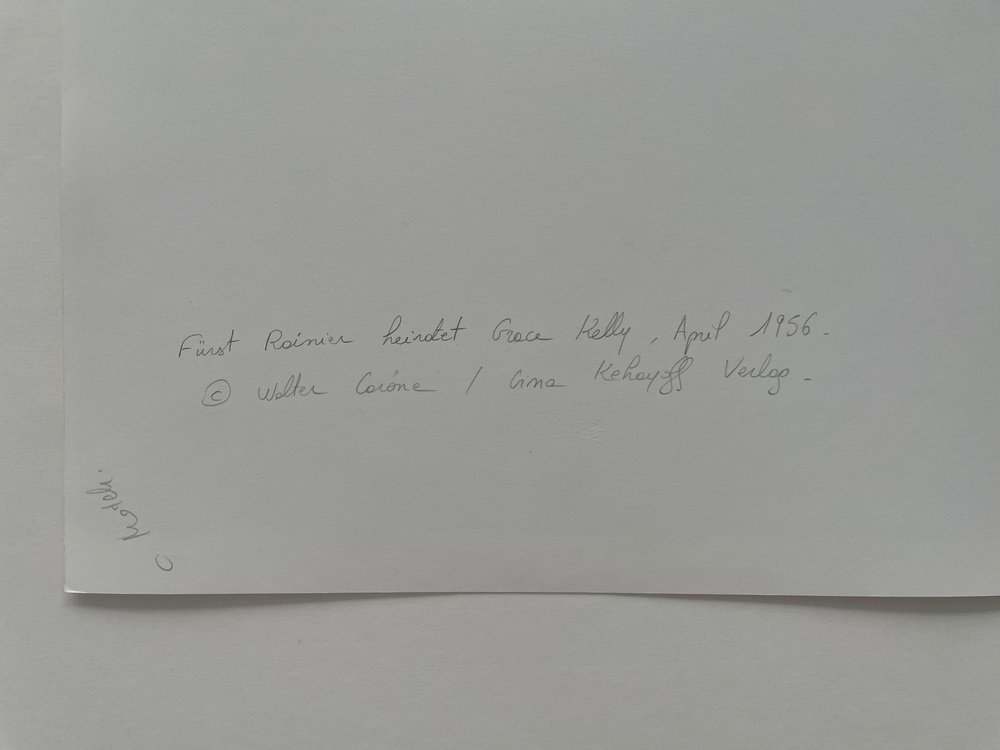 Fürst Rainier heiratet Grace Kelly, April 1956.
© Walter Carone / Gina Kehayoff Verlag.